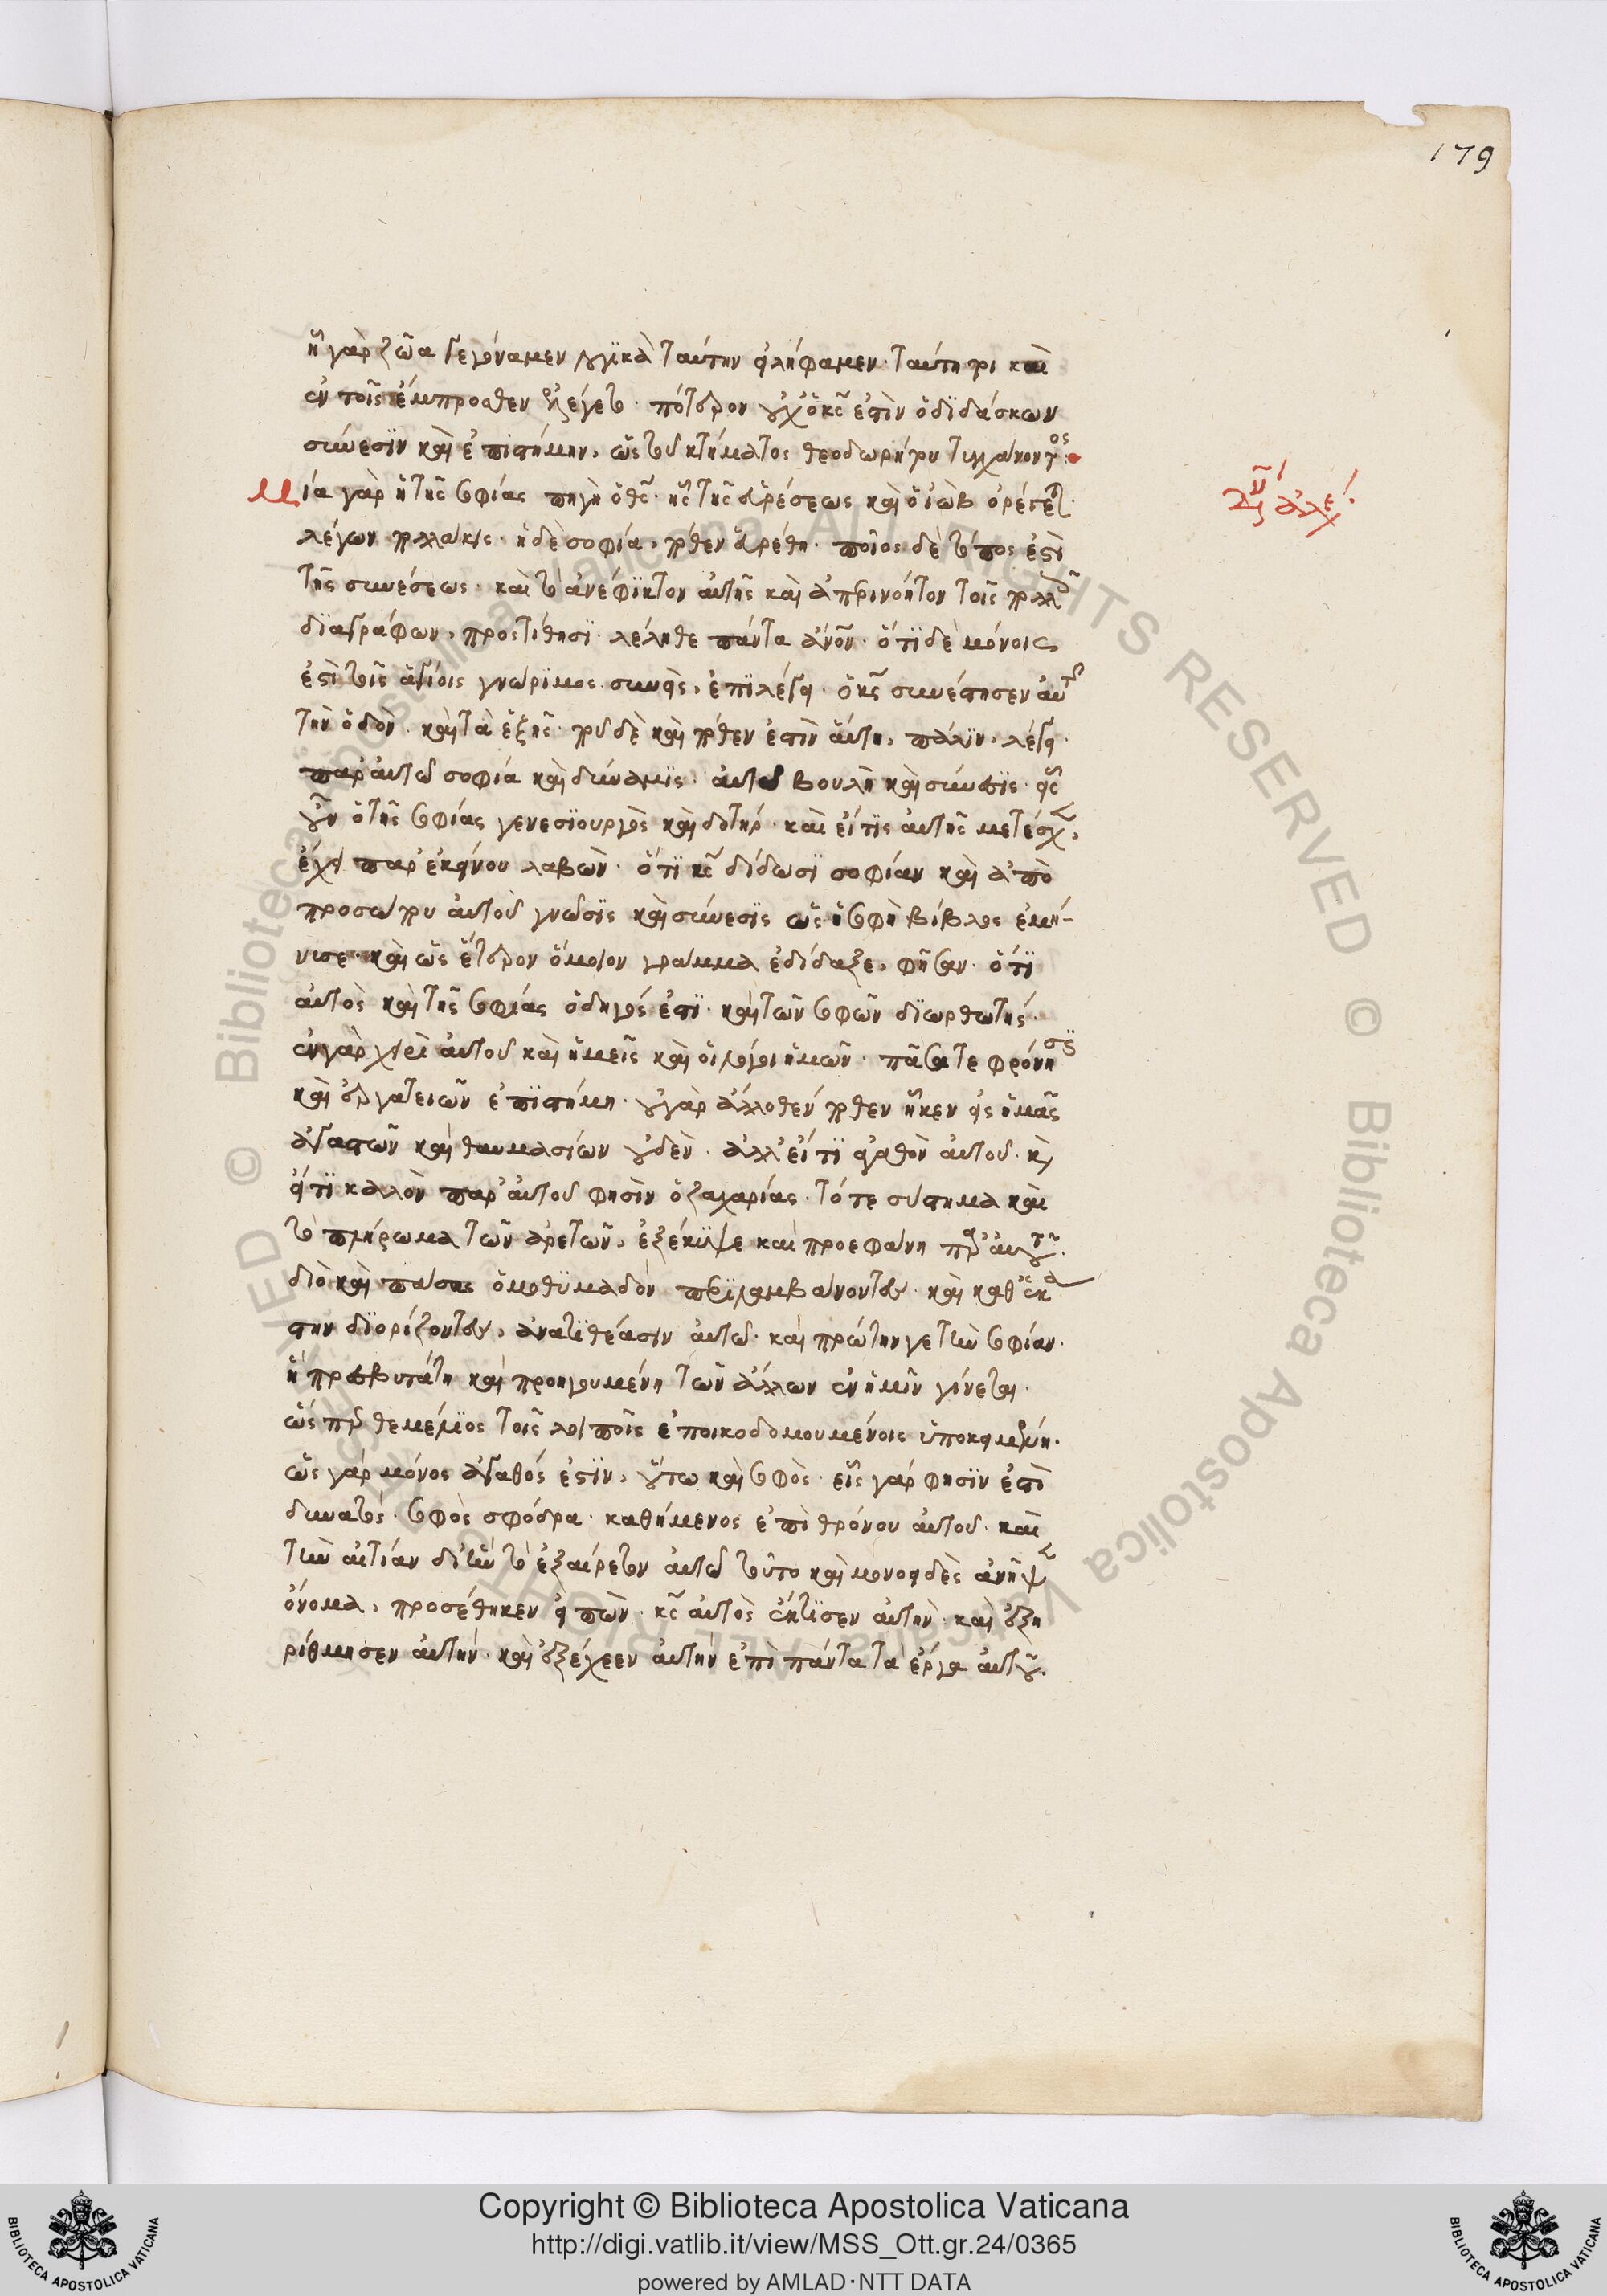 179
ἢ γὰρ ζῶα γεγόναμεν λογϊκὰ ταύτην εἰλήφαμεν· ταύτη τοι καὶ
ἐν τοῖς ἔμπροσθεν ἔλεγε το· πότερον οὐχ ὁ κς ἐστὶν ὁ διδάσκων
σύνεσϊν καὶ ἐπιστήμην, ὡς τοῦ κτήματος θεοδωρήτου τυγχάνοντος·
Μία γὰρ ἡ τῆς σοφίας πηγὴ ὁ θς·
λέγων πολλάκις· ἡ δὲ σοφία, πόθεν εὑρέθη· ποῖος δὲ τόπος ἐστὶ
τῆς συνέσεως· καὶ τὸ ἀνέφϊκτον αὐτῆς καὶ ἀπερινόητον τοῖς πολλοῖς
διαγράφων, προστίθησϊ· λέληθε πάντα ἄνον· ὅτϊ δὲ μόνοις
ἐστὶ τοῖς ἀξίοις γνώριμος συνεὶς, ἐπϊλέγει· ὁ κς συνέστησεν αὐτῆς
τὴν ὁδὸν· καὶ τὰ ἑξῆς· ποῦ δὲ καὶ πόθεν ἐστὶν αὕτη, πάλϊν, λέγει·
παρ' αὐτῶ σοφία καὶ δύναμϊς· αὐτῶ βουλὴ καὶ σύνεσϊς· εἷς
οὖν ὁ τῆς σοφίας γενεσϊουργὸς καὶ δοτὴρ· καὶ εἴ τϊς αὐτῆς μετέσχεν,
ἔχει παρ' ἐκείνου λαβὼν· ὅτϊ κς δίδωσϊ σοφίαν καὶ ἀπὸ
προσώπου αὐτοῦ γνῶσϊς καὶ σύνεσϊς ὡς ἡ σοφὴ βίβλος ἐμή-
νυσε· καὶ ὡς ἕτερον ὅμοιον γράμμα ἐδίδαξε, φῆσαν· ὅτϊ
αὐτὸς καὶ τῆς σοφίας ὁδηγός ἐστϊ· καὶ τῶν σοφῶν δϊωρθωτής·
ἐν γὰρ χειρὶ αὐτοῦ καὶ ἡμεῖς καὶ οἱ λόγοι ἡμῶν· πᾶσα τε φρόνησϊς
καὶ ἐργατειῶν ἐπϊστήμη· οὐ γὰρ ἄλλοθέν ποθεν ἧκεν εἰς ἡμᾶς
ἀγαστῶν καὶ θαυμασίων οὐδὲν· ἀλλ' εἴ τϊ ἀγαθὸν αὐτοῦ· καὶ
εἴ τϊ καλὸν παρ' αὐτοῦ φησὶν ὁ ζαχαρίας· τό τε σύστημα καὶ
τὸ πλήρωμα τῶν ἀρετῶν, ἐξέκυψε καὶ προεφάνη παρ' αὐτοῦ·
διὸ καὶ πάσας ὁμοθϋμαδὸν περϊλαμβάνοντες· καὶ καθ' ἑκά
στην διορίζοντες, ἀνατϊθέασιν αὐτῶ· καὶ πρώτην γε τὴν σοφίαν·
ἣ πρεσβυτάτη καὶ προηγουμένη τῶν ἄλλων ἐν ἡμῖν γίνεται·
ὥσπερ θεμέλϊος τοῖς λοιποῖς ἐποικοδομουμένοις ὑποκειμένη·
ὡς γὰρ μόνος ἀγαθός ἐστϊν, οὕτω καὶ σοφὸς· εἷς γάρ φησϊν ἐστὶ
δυνατὸς· σοφὸς σφόδρα· καθήμενος ἐπὶ θρόνου αὐτοῦ· καὶ
τὴν αἰτίαν δι' ἣν τὸ ἐξαίρετον αὐτῶ τοῦτο καὶ μονοειδὲς ἀνῆψεν
ὄνομα, προσέθηκεν εἰπὼν· κς αὐτὸς ἔκτϊσεν αὐτὴν· καὶ ἐξη
ρίθμησεν αὐτὴν· καὶ ἐξέχεεν αὐτὴν ἐπὶ πάντα τὰ ἔργα αὐτοῦ·
Copyright © Biblioteca Apostolica Vaticana
http://digi.vatlib.it/view/MSS_Ott.gr.24/0365
powered by AMLAD·NTT DATA
BIBLIOTECA APOSTOLICA VATICANA
BIBLIOTECA APOSTOLICA VATICANA